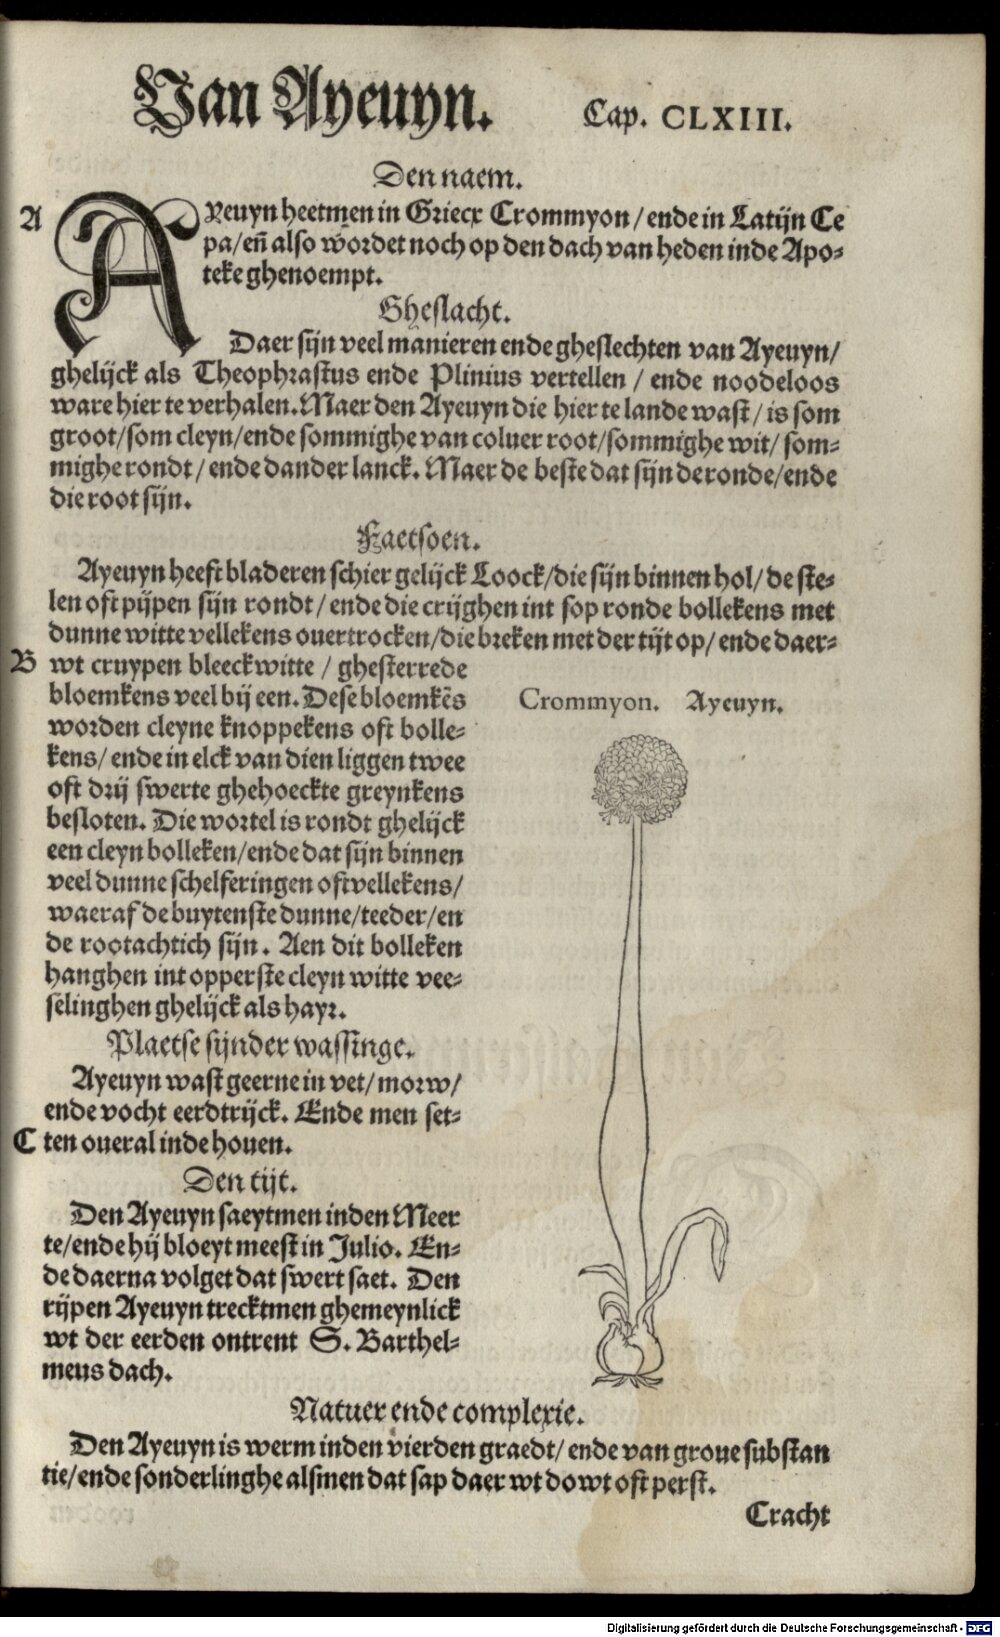 Van Ayeuyn. Cap. CLXIII.
Den naem.
A AYeuyn heetmen in Griecx Crommyon/ende in Latijn Ce
pa/eñ also wordet noch op den dach van heden inde Apo-
teke ghenoempt.
Gheslacht.
Daer sijn veel manieren ende gheslechten van Ayeuyn/
ghelijck als Theophrastus ende Plinius vertellen/ende noodeloos
ware hier te verhalen. Maer den Ayeuyn die hier te lande wast/is som
groot/som cleyn/ende sommighe van coluer root/sommighe wit/som-
mighe rondt/ende dander lanck. Maer de beste dat sijn de ronde/ende
die root sijn.
Faetsoen.
Ayeuyn heeft bladeren schier gelijck Loock/die sijn binnen hol/de ste-
len oft pijpen sijn rondt/ende die crijghen int sop ronde bollekens met
dunne witte vellekens ouertrocken/die breken met der tijt op/ende daer-
B wt cruypen bleeckwitte/ghesterrede
bloemkens veel bij een. Dese bloemkēs
worden cleyne knoppekens oft bolle-
kens/ende in elck van dien liggen twee
oft drij swerte ghehoeckte greynkens
besloten. Die wortel is rondt ghelijck
een cleyn bolleken/ende dat sijn binnen
veel dunne schelferingen oft vellekens/
waeraf de buytenste dunne/teeder/en
de rootachtich sijn. Aen dit bolleken
hanghen int opperste cleyn witte vee-
selinghen ghelijck als hayr.
Crommyon. Ayeuyn.
Plaetse sijnder wassinge.
Ayeuyn wast geerne in vet/morw/
ende vocht eerdtrijck. Ende men set-
C ten oueral inde houen.
Den tijt.
Den Ayeuyn saeytmen inden Meer
te/ende hij bloeyt meest in Julio. En-
de daerna volget dat swert saet. Den
rijpen Ayeuyn trecktmen ghemeynlick
wt der eerden ontrent S. Barthel-
meus dach.
Natuer ende complexie.
Den Ayeuyn is werm inden vierden graedt/ende van groue substan
tie/ende sonderlinghe alsmen dat sap daer wt dowt oft perst.
Cracht
Digitalisierung gefördert durch die Deutsche Forschungsgemeinschaft - DFG